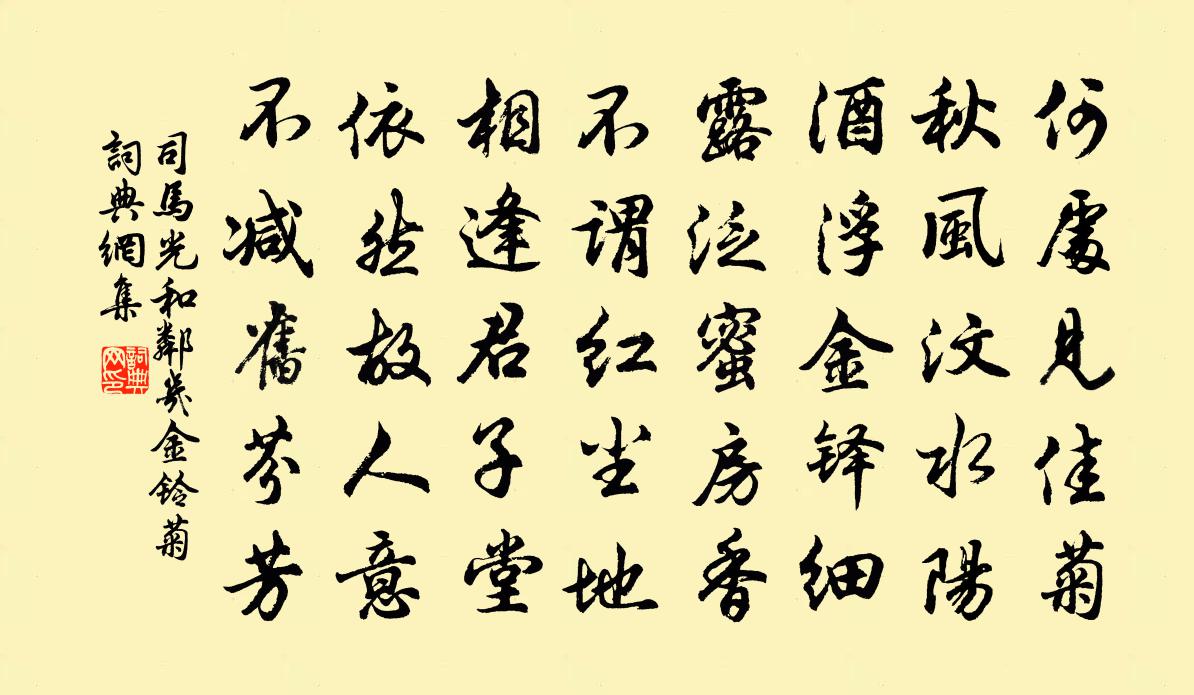 何處見佳菊
秋風汶水陽
酒浮金铎细
露泛蜜房香
不謂红尘地
相逢君子堂
依然故人意
不减舊芬芳
司馬光和鄰幾金铃菊
詞典網集
詞典网印